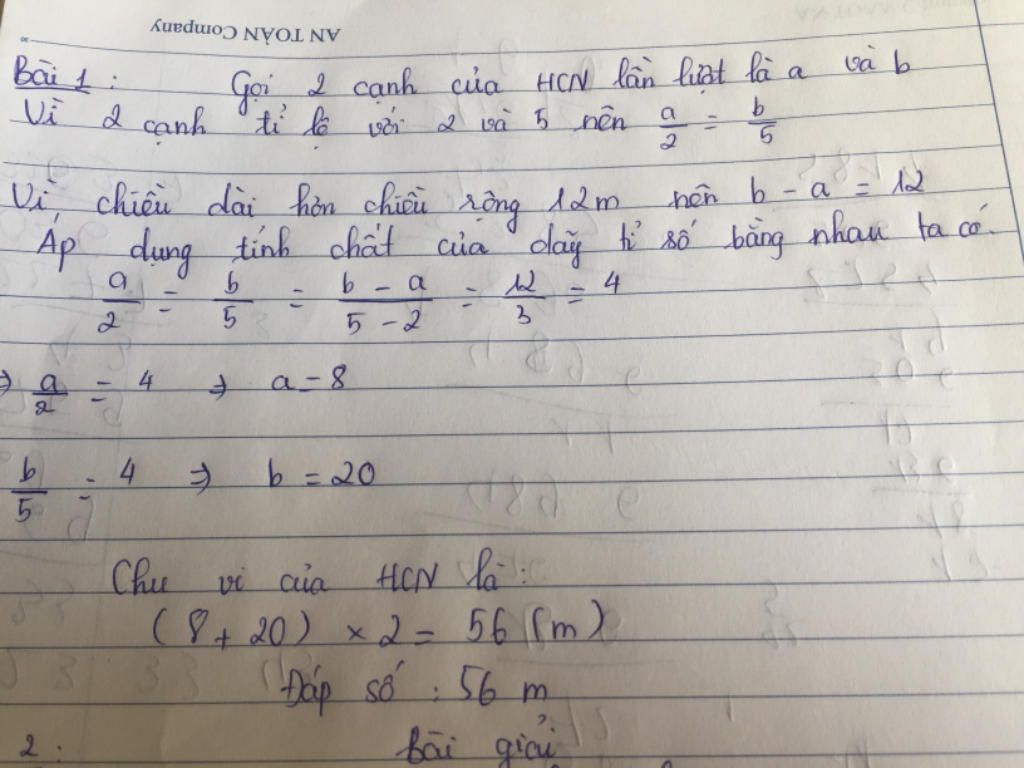 AN TOÀN Company
Bài 1 : Gọi 2 cạnh của HCN lần lượt là a và b
Vì 2 cạnh tỉ lệ với 2 và 5 nên a/2 = b/5
Vì chiều dài hơn chiều rộng 12m nên b - a = 12
Áp dụng tính chất của dãy tỉ số bằng nhau ta có.
a/2 = b/5 = b - a/5 - 2 = 12/3 = 4
⇒ a/2 = 4 ⇒ a = 8
b/5 = 4 ⇒ b = 20
Chu vi của HCN là :
( 8 + 20 ) × 2 = 56 (m)
Đáp số : 56 m
2 : Bài giải